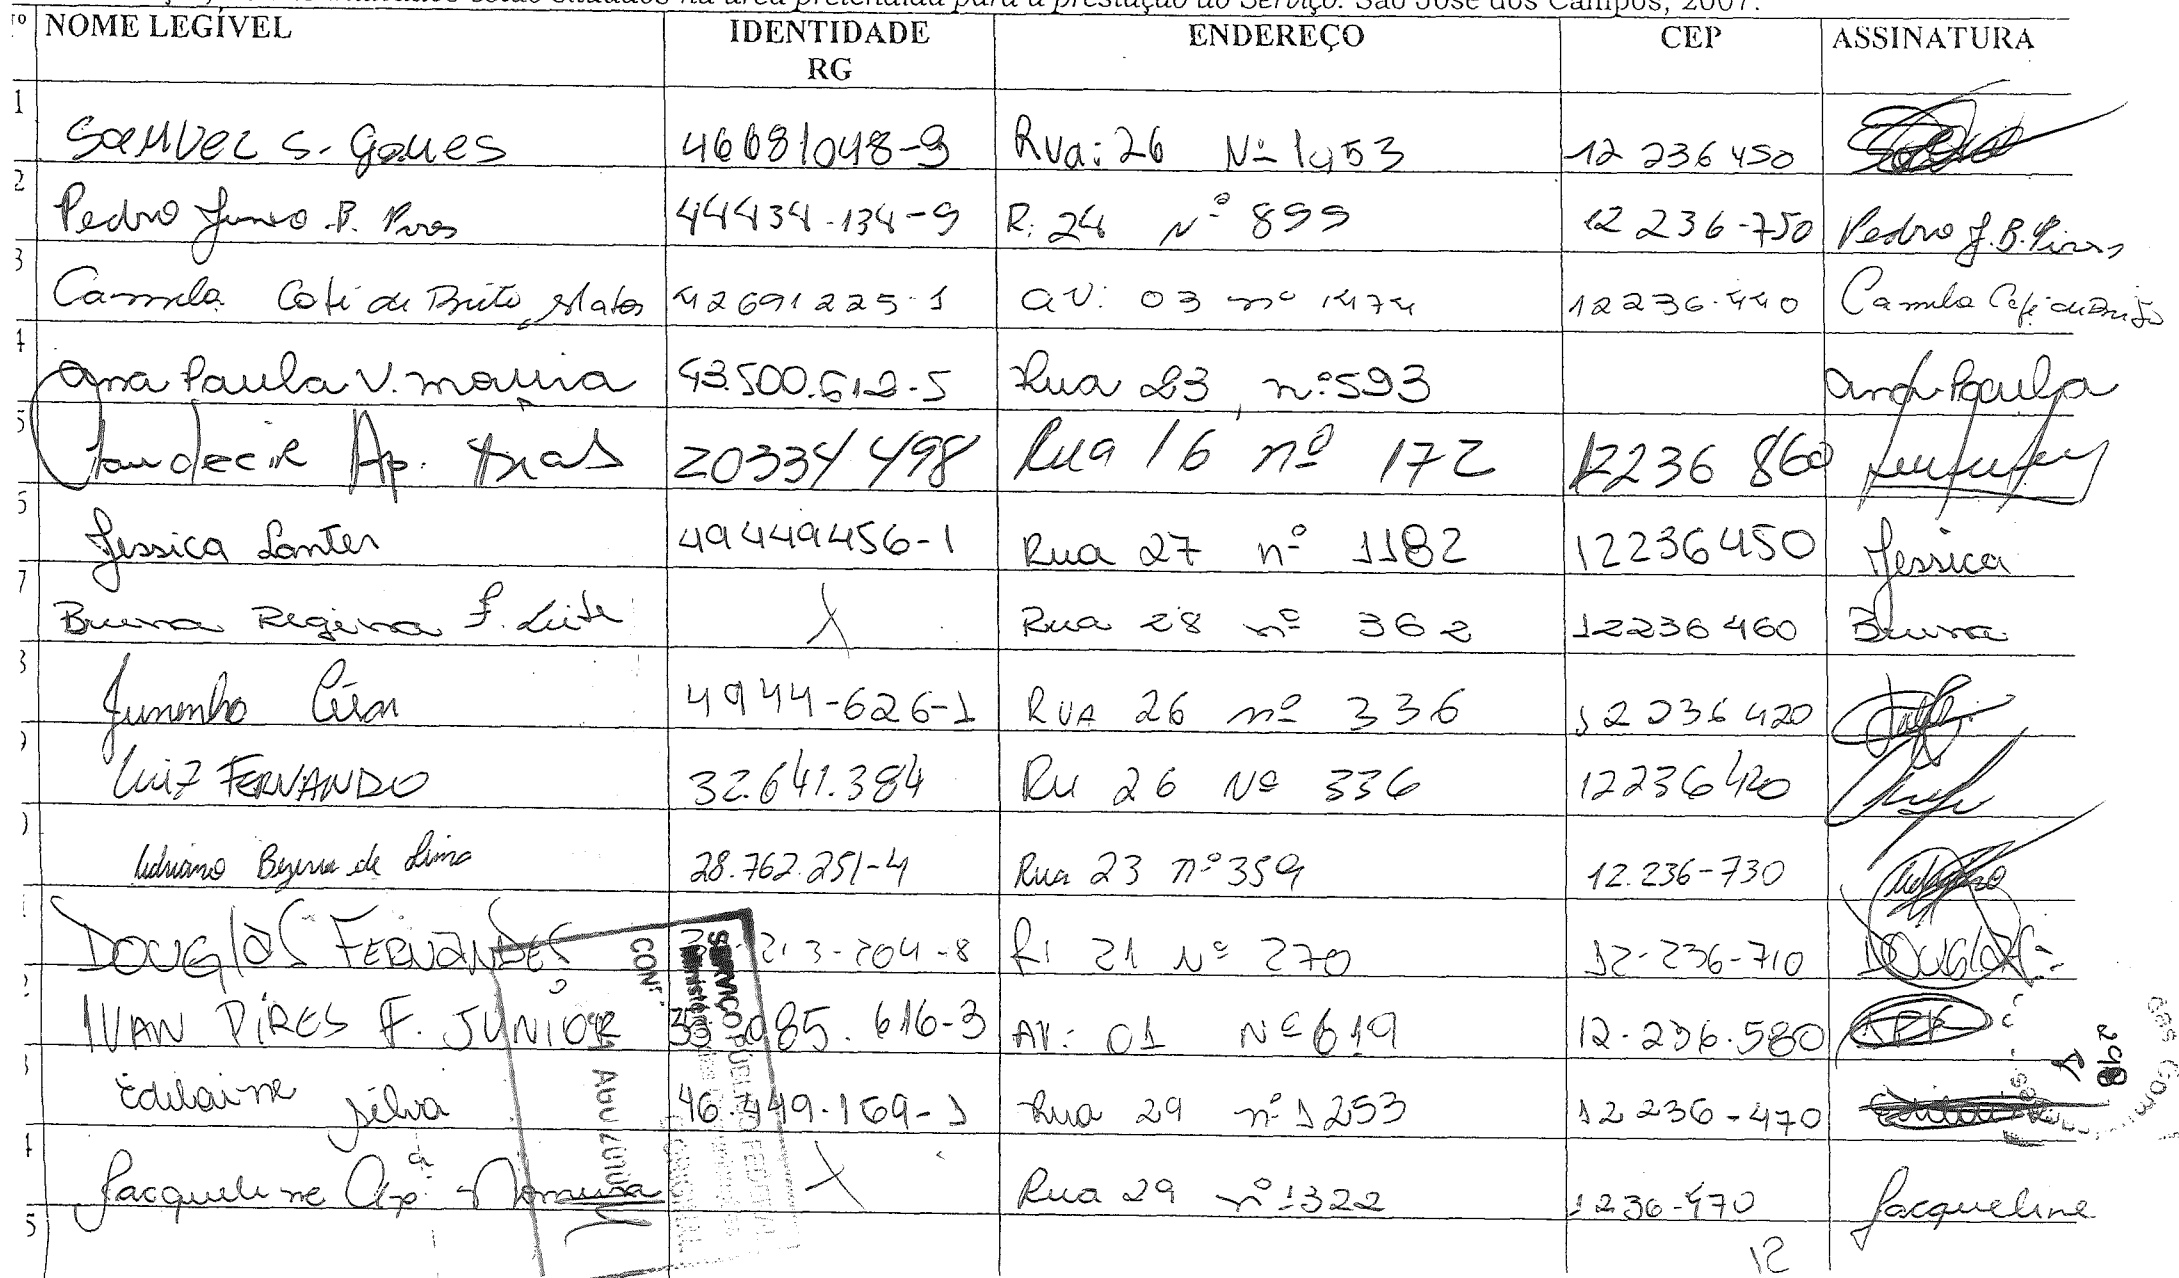 na área pretendida para a prestação do Serviço. São José dos Campos, 2007.
Nº NOME LEGÍVEL IDENTIDADE RG ENDEREÇO CEP ASSINATURA
1 Samuel S. Gomes 46681048-9 Rua: 26 Nº 1453 12 236 450
2 Pedro B. Pires 44434-134-9 R: 24 Nº 899 12 236-750 Pedro J.B. Pires
3 Camila de Brito Matos 42691225-1 AV: 03 nº 1474 12236-440 Camila
4 Ana Paula V. 43.500.612-5 Rua 23, nº 593 Ana Paula
5 Ap. 20334498 Rua 16 nº 172 12236 860
6 Jessica 49449456-1 Rua 27 nº 1182 12236450 Jessica
7 Bruna Regina F. Leite X Rua 28 nº 362 12236460 Bruna
8 Juninho César 4944-626-1 RUA 26 nº 336 12 236 420
9 Luiz FERNANDO 32.641.384 Ru 26 Nº 336 12236420
Adriano Bezerra de Lima 28.762.251-4 Rua 23 nº 359 12.236-730
DOUGlaS FERNANDES 213-204-8 R: 21 Nº 270 12-236-710 DOUGlaS
IVAN PIRES F. JUNIOR 085.616-3 AV: 01 Nº 619 12-236.580
Edilaine Silva 46.449.169-1 Rua 29 nº 1253 12 236-470 Edilaine
Jacqueline Ap. X Rua 29 nº 1322 1236-470 Jacqueline
5
12
SERVIÇO PÚBLICO FEDERAL
298
das Com